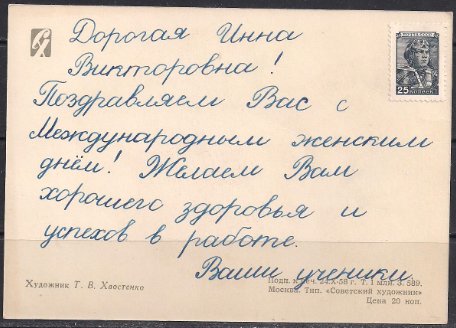 Дорогая Инна
Викторовна!
Поздравляем Вас с
Международным женским
днём! Желаем Вам
хорошего здоровья и
успехов в работе.
Ваши ученики
ПОЧТА СССР
25
КОПЕЕК
Художник Т. В. Хвостенко
Подп. к печ. 24.X-58 г. Т. 1 млн. З. 589.
Москва. Тип. «Советский художник»
Цена 20 коп.